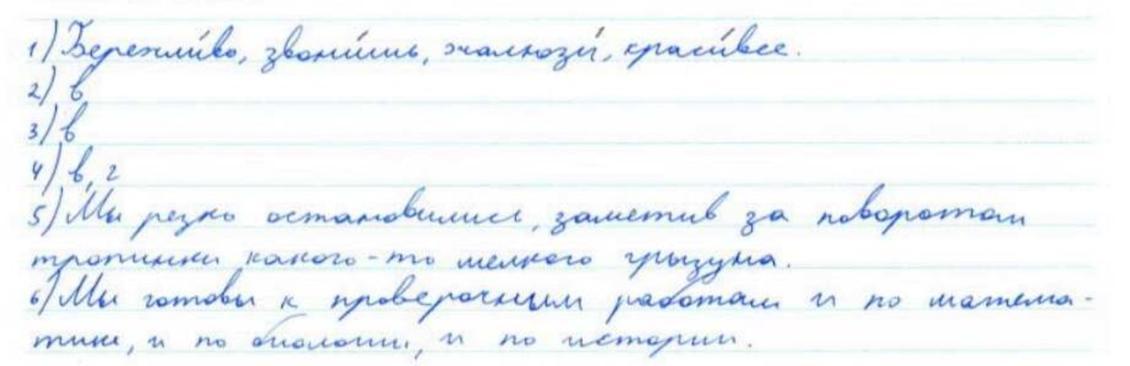 1) Бережли́во, звони́шь, жалюзи́, краси́вее.
2) в
3) в
4) в, г
5) Мы резко остановились, заметив за поворотом
тропинки какого-то мелкого грызуна.
6) Мы готовы к проверочным работам и по матема-
тике, и по биологии, и по истории.